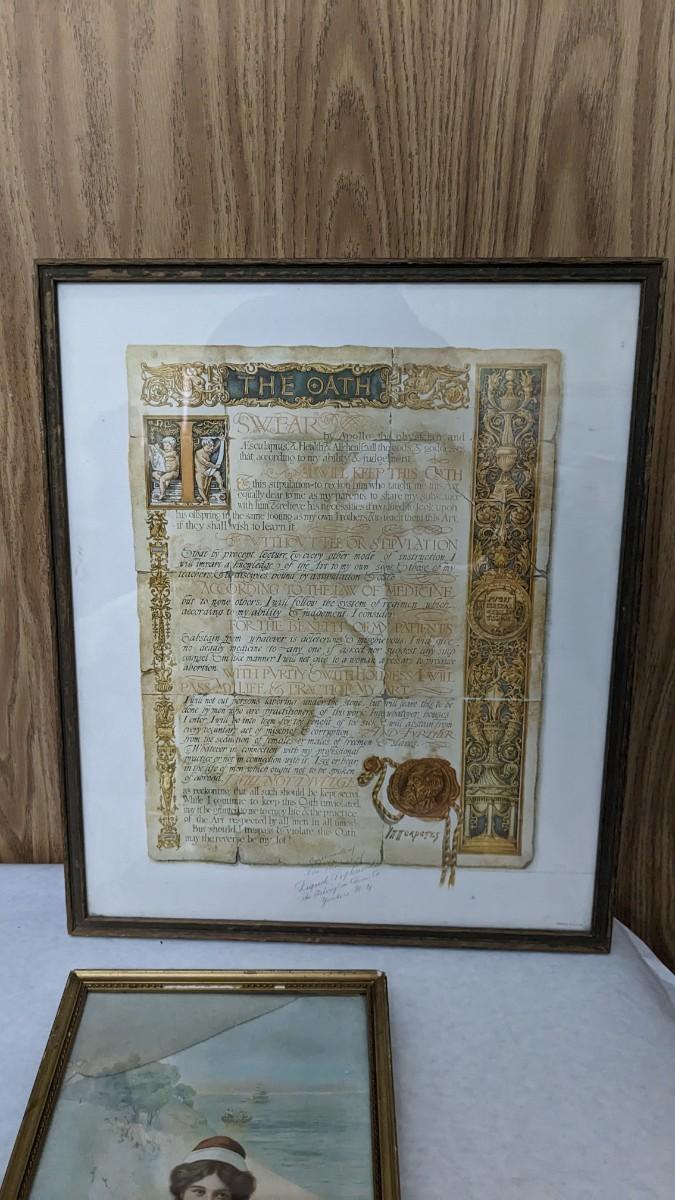 THE OATH
I SWEAR
by Apollo the physician and
Æsculapius, & Health & All-heal & all the gods & goddesses
that according to my ability & judgement
I WILL KEEP THIS OATH
& this stipulation–to reckon him who taught me this Art
equally dear to me as my parents to share my substance
with him & relieve his necessities if required; to look upon
his offspring in the same footing as my own brothers & to teach them this Art
if they shall wish to learn it
WITHOUT FEE OR STIPULATION
& that by precept, lecture & every other mode of instruction I
will impart a knowledge of the Art to my own sons & those of my
teachers & to disciples bound by a stipulation & oath
ACCORDING TO THE LAW OF MEDICINE
but to none others. I will follow the system of regimen which
according to my ability & judgment I consider
FOR THE BENEFIT OF MY PATIENTS
& abstain from whatever is deleterious & mischievous. I will give
no deadly medicine to any one if asked nor suggest any such
counsel & in like manner I will not give to a woman a pessary to produce
abortion.
WITH PVRITY & WITH HOLINESS I WILL
PASS MY LIFE & PRACTICE MY ART
I will not cut persons laboring under the stone but will leave this to be
done by men who are practitioners of this work. Into whatever houses
I enter, I will go into them for the benefit of the sick & will abstain from
every voluntary act of mischief & corruption AND FVRTHER
from the seduction of females or males of freemen & slaves.
Whatever in connection with my professional
practice or not in connection with it, I see or hear
in the life of men which ought not to be spoken
of abroad I WILL NOT DIVULGE
as reckoning that all such should be kept secret
While I continue to keep this Oath unviolated
may it be granted to me to enjoy life & the practice
of the Art respected by all men in all times
But should I trespass & violate this Oath
may the reverse be my lot!
Yonkers N.Y.